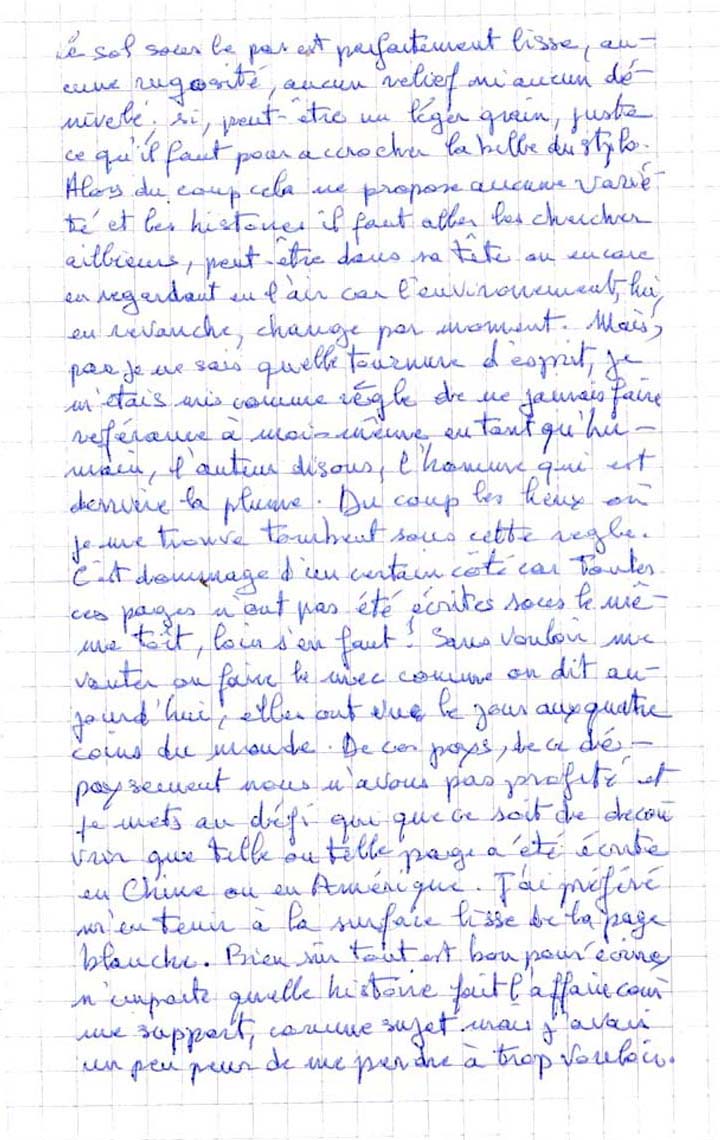 Le sol sous le pas est parfaitement lisse, au-
cune rugosité, aucun relief ni aucun dé-
nivelé ; si, peut-être un léger grain, juste
ce qu'il faut pour accrocher la bille du stylo.
Alors du coup cela ne propose aucune varié-
té et les histoires il faut aller les chercher
ailleurs, peut-être dans sa tête ou encore
en regardant en l'air car l'environnement, lui,
en revanche, change par moment. Mais,
par je ne sais quelle tournure d'esprit, je
m'étais mis comme règle de ne jamais faire
référance à moi-même en tant qu'hu-
main, l'auteur disons, l'homme qui est
derrière la plume. Du coup les lieux où
je me trouve tombent sous cette regle.
C'est dommage d'un certain côté car toutes
ces pages n'ont pas été écrites sous le mê-
me toît, loin s'en faut ! Sans vouloir me
vanter ou faire le mec comme on dit au-
jourd'hui, elles ont vue le jour aux quatre
coins du monde. De ces pays, de ce dé-
paysement nous n'avons pas profité et
je mets au défi qui que ce soit de décou
vrir que telle ou telle page a été écrite
en Chine ou en Amérique. J'ai préféré
m'en tenir à la surface lisse de la page
blanche. Bien sûr tout est bon pour écrire,
n'importe quelle histoire fait l'affaire com
me support, comme sujet mais j'avais
un peu peur de me perdre à trop vouloir.